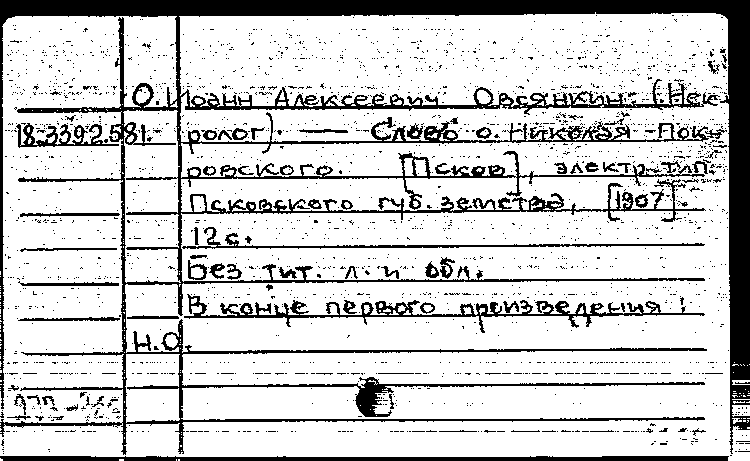 О. Иоанн Алексеевич Овсянкин. (Нек-
18.339.2.581. ролог). — Слово о. Николая Пок-
ровского. [Псков], электр. тип.
Псковского губ. земства, [1907].
12 с.
Без тит. л. и обл.
В конце первого произведения:
Н.О.